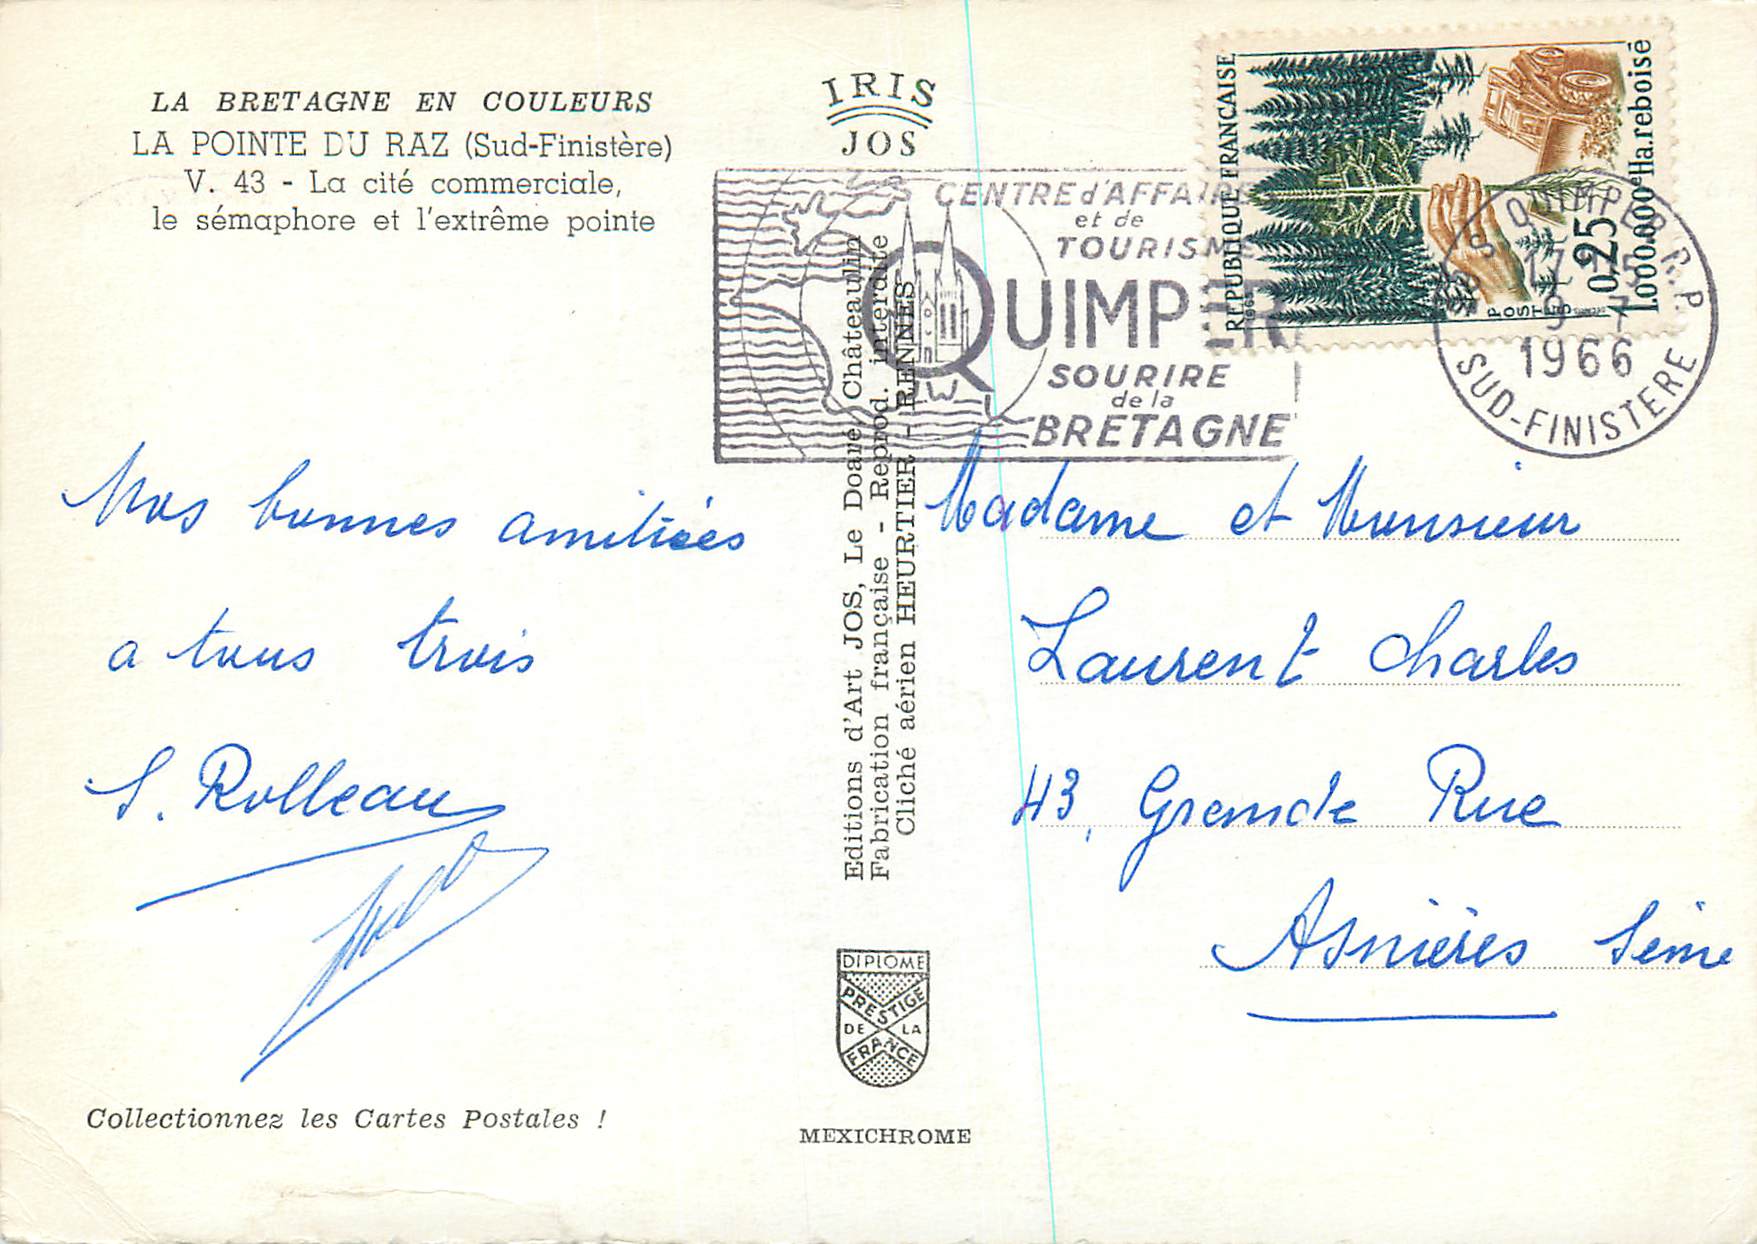 LA BRETAGNE EN COULEURS
LA POINTE DU RAZ (Sud-Finistère)
V. 43 - La cité commerciale,
le sémaphore et l'extrême pointe
Nos bonnes amitiées
a tous trois
S. Rolleau
Collectionnez les Cartes Postales !
IRIS
JOS
Editions d'Art JOS, Le Doaré, Châteaulin
Fabrication française - Reprod. interdite
Cliché aérien HEURTIER - RENNES
DIPLOME
PRESTIGE
DE LA
FRANCE
MEXICHROME
CENTRE d'AFFAIRE
et de
TOURISME
QUIMPER
SOURIRE
de la
BRETAGNE
REPUBLIQUE FRANÇAISE
1965
POSTES
0,25
1.000.000e Ha. reboisé
QUIMPER R.P.
17
9 - 7
1966
SUD-FINISTERE
Madame et Monsieur
Laurent Charles
43, Grande Rue
Asnières Seine